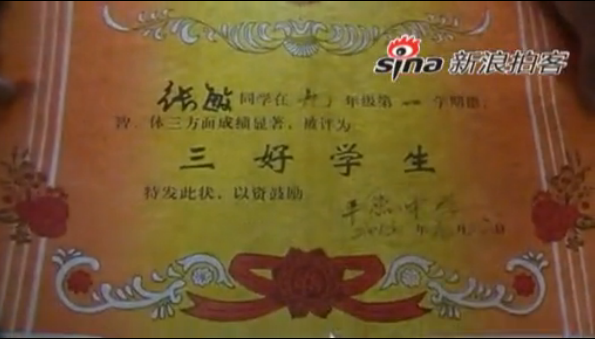 sina 新浪拍客
张敏同学在 年级第一学期德、
智、体三方面成绩显著，被评为
三好学生
特发此状，以资鼓励
年 月 日